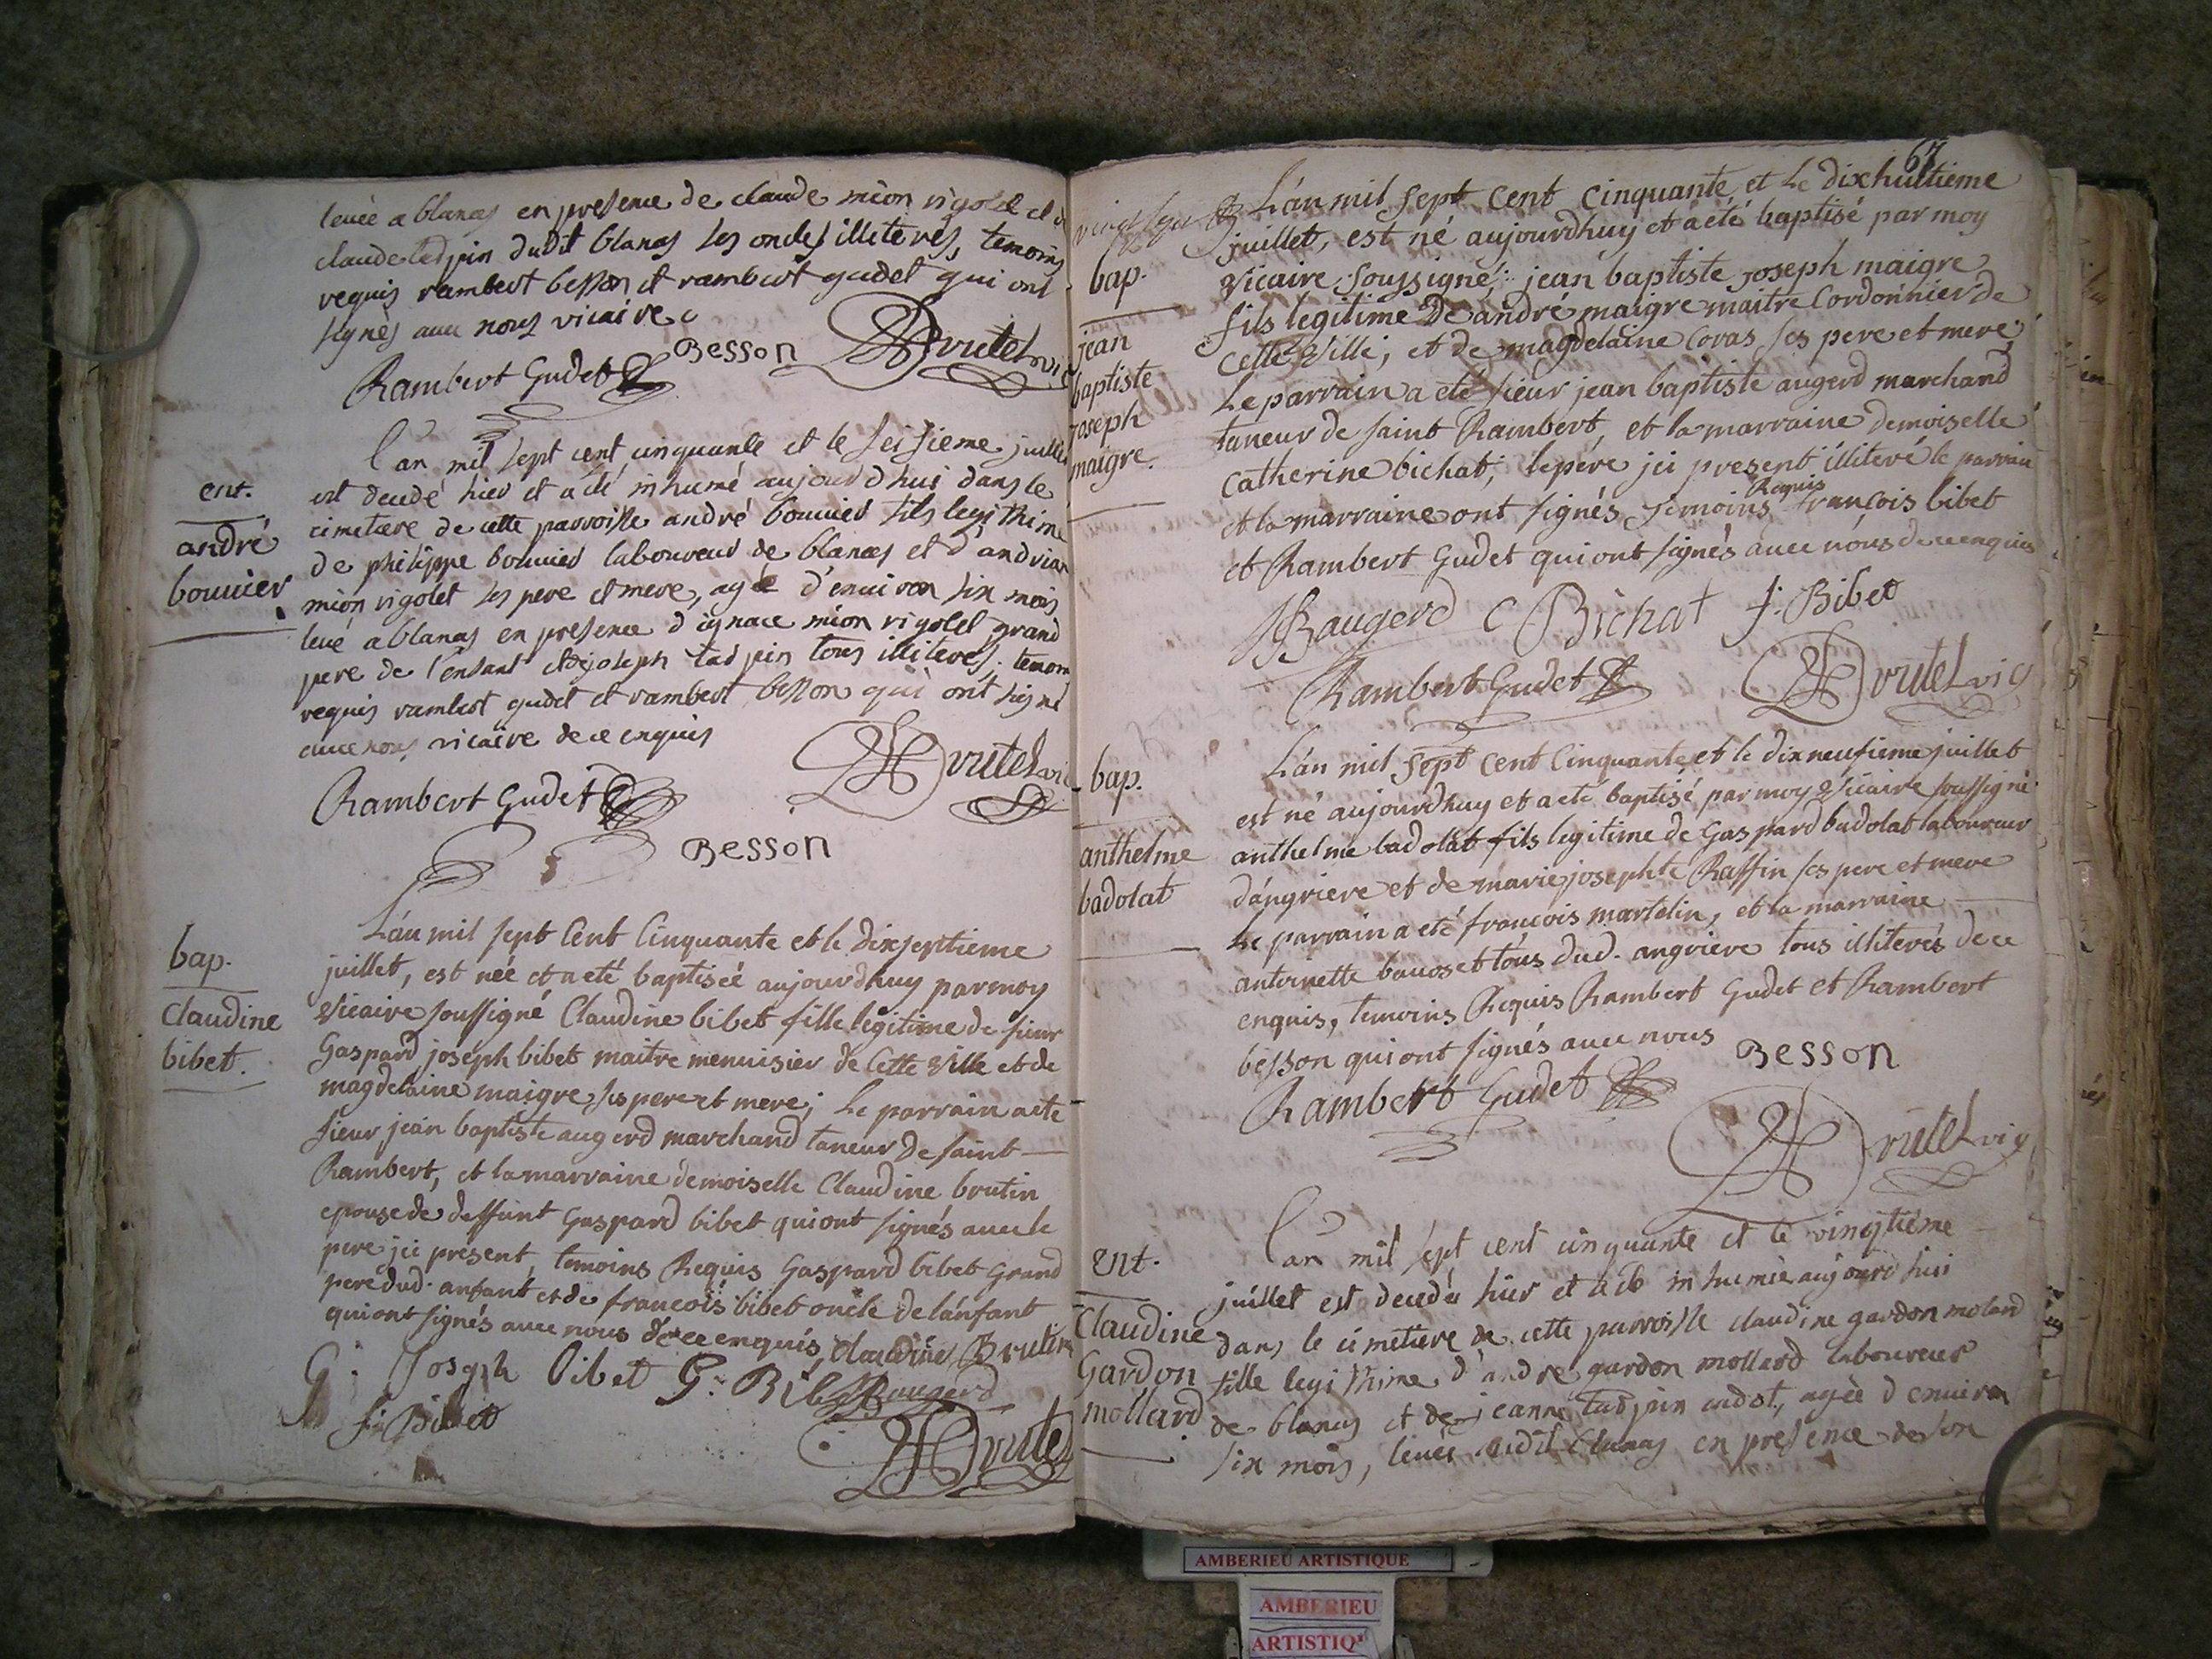 levée a blanas en presence de claude mion rigolet et
claude tarpin dudit blanas ses oncles illiterés, temoins
requis rambert besson et rambert gudet qui ont
signés avec nous vicaire
Rambert Gudet Besson Drutel vic
ent.
andré
bouvier
L'an mil sept cent cinquante et le seisieme juillet
est decedé hier et a été inhumé aujourd'hui dans le
cimetiere de cette parroisse andré bouvier fils legithime
de philippe bouvier laboureur de blanas et d'andrian
mion rigolet ses pere et mere, agé d'environ six mois
levé a blanas en presence d'ignace mion rigolet grand
pere de l'enfant et de joseph tarpin tous illiterés, temoins
requis rambert gudet et rambert besson qui ont signé
avec nous vicaire de ce enquis
Rambert Gudet Drutel vic
Besson
bap.
Claudine
bibet.
L'an mil sept Cent Cinquante et le dixseptieme
juillet, est née et a eté baptisée aujourdhuy par moy
Vicaire soussigné Claudine bibet fille legitime de sieur
Gaspard joseph bibet maitre menuisier de Cette Ville et de
magdelaine maigre ses pere et mere; Le parrain a eté
sieur jean baptiste augerd marchand taneur de saint
Rambert, et la marraine demoiselle Claudine brutin
epouse de deffunt Gaspard bibet qui ont signés avec le
pere jci present, temoins Requis Gaspard bibet Grand
pere dud. anfant et de francois bibet oncle de l'anfant
qui ont signés avec nous de ce enquis Claudine Brutin
G: Joseph Bibet G: Bibet JBaugerd
f: Bibet
Drutel
67
bap.
jean
baptiste
joseph
maigre.
L'an mil sept Cent Cinquante et Le dixhuitieme
juillet, est né aujourdhuy et a eté baptisé par moy
Vicaire soussigné; jean baptiste joseph maigre
fils legitime De andré maigre maitre Cordonnier de
Cette Ville; et de magdelaine Coras ses pere et mere;
Le parrain a eté sieur jean baptiste augerd marchand
taneur de saint Rambert, et la marraine demoiselle
Catherine bichat; le pere jci present illiteré le parrain
Requis
et la marraine ont signés temoins francois bibet
et Rambert Gudet qui ont signés avec nous de ce enquis
JBaugerd C Bichat f: Bibet
Rambert Gudet Drutel vic
bap.
anthelme
badolat
L'an mil sept Cent Cinquante et le dixneufieme juillet
est né aujourdhuy et a eté baptisé par moy Vicaire soussigné
anthelme badolat fils legitime de Gaspard badolat laboureur
d'angriere et de marie josephte Raffin ses pere et mere
Le parrain a eté francois martelin, et la marraine
antoinette bavoset tous dud. angriere tous illiterés de ce
enquis, temoins Requis Rambert Gudet et Rambert
besson qui ont signés avec nous
Rambert Gudet Besson
Drutel vic
ent.
Claudine
Gardon
mollard
L'an mil sept cent cinquante et le vingtieme
juillet est decedée hier et a été inhumée aujourd'hui
dans le cimetiere de cette parroisse claudine gardon molard
fille legithime d'andre gardon mollard laboureur
de blanas et de jeanne tarpin
six mois, levée audit blanas en presence de son
AMBERIEU ARTISTIQUE
AMBERIEU
ARTISTIQ